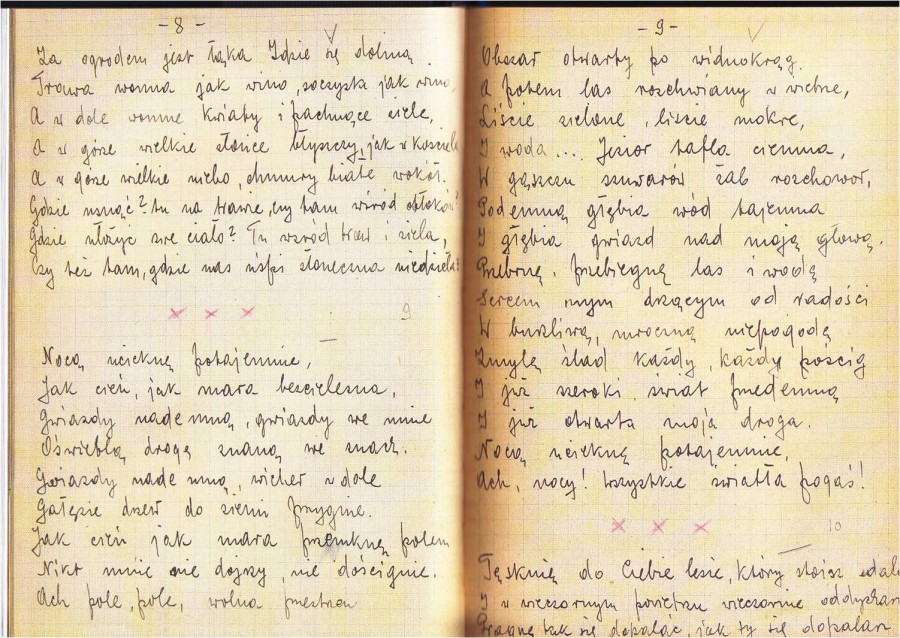 - 8 -
Za ogrodem jest łąka. Idzie się doliną.
Trawa wonna jak wino, soczysta jak wino,
A w dole wonne kwiaty i pachnące ziele,
A w górze wielkie słońce błyszczy, jak w kościele
A w górze wielkie niebo, chmury białe wokół.
Gdzie usnąć? tu na trawie, czy tam wśród obłoków?
Gdzie złożyć swe ciało? Tu wśród traw i ziela,
Czy też tam, gdzie nas uśpi słoneczna niedziela?
x x x 9
Nocą ucieknę potajemnie,
Jak cień, jak mara bezcielesna,
Gwiazdy nademną, gwiazdy we mnie
Oświetlą drogę znaną we snach.
Gwiazdy nademną, wicher w dole
Gałęzie drzew do ziemi przygnie.
Jak cień jak mara przemknę polem
Nikt mnie nie dojrzy, nie doścignie.
Ach pole, pole, wolna przestrzeń
- 9 -
Obszar otwarty po widnokrąg.
A potem las rozchwiany w wietrze,
Liście zielone, liście mokre,
I woda... Jezior tafla ciemna,
W gąszczu szuwarów żab rozhowor,
Podemną głębia wód tajemna
I głębia gwiazd nad moją głową.
Przebrnę, przebiegnę las i wodę
Sercem mym drżącym od radości
W burzliwą, mroczną niepogodę
Zmylę ślad każdy, każdy pościg
I już szeroki świat przedemną
I już otwarta moja droga.
Nocą ucieknę potajemnie,
Ach, nocy! Wszystkie światła pogaś!
x x x 10
Tęsknię do Ciebie lesie, który stoisz
I w wieczornym powietrzu wieczornie
Pragnę tak się dopalać, jak ty się dopalasz